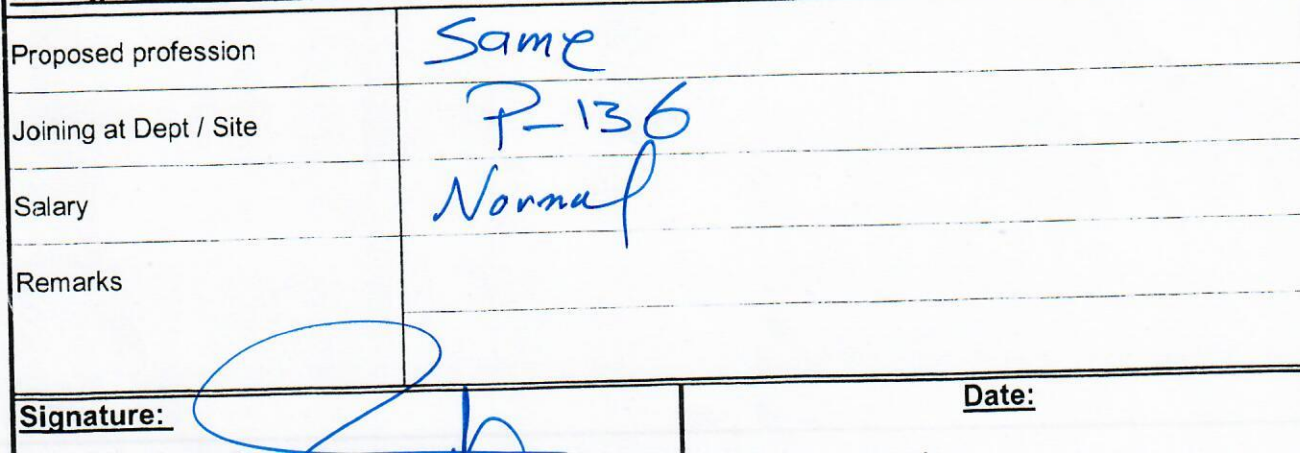 Proposed profession Same
Joining at Dept / Site P-136
Salary Normal
Remarks
Signature: Date: